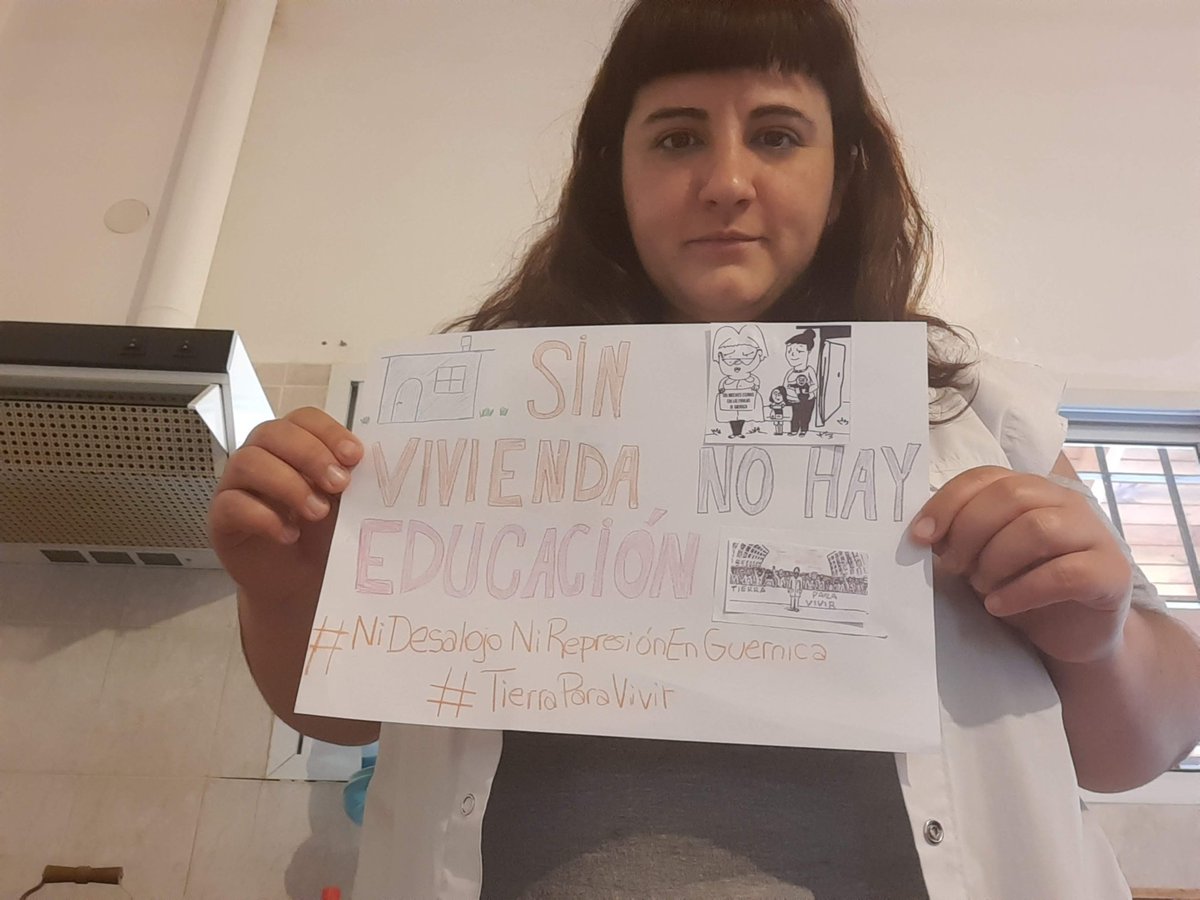 SIN
VIVIENDA NO HAY
EDUCACIÓN
TIERRA PARA
VIVIR
#NiDesalojoNiRepresiónEnGuernica
#TierraParaVivir